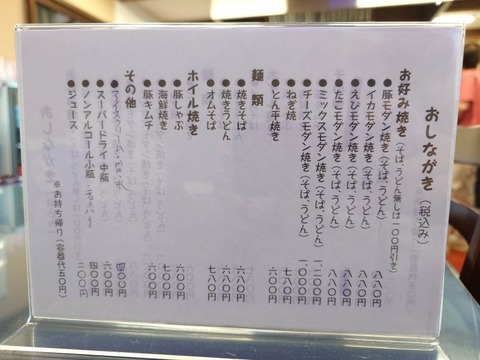 おしながき(税込み)
お好み焼き(そば、うどん無しは一〇〇円引き)
●豚モダン焼き(そば、うどん) 八八〇円
●イカモダン焼き(そば、うどん) 八八〇円
●えびモダン焼き(そば、うどん) 八八〇円
●たこモダン焼き(そば、うどん) 八八〇円
●ミックスモダン焼き(そば、うどん) 一、二〇〇円
●チーズモダン焼き(そば、うどん) 一、〇〇〇円
●ねぎ焼 七八〇円
●とん平焼き 六〇〇円
麺類
●焼きそば 六八〇円
●焼きうどん 六八〇円
●オムそば 七八〇円
ホイル焼き
●豚しゃぶ 六〇〇円
●海鮮焼き 七〇〇円
●豚キムチ 六〇〇円
その他
●スーパードライ中瓶 六〇〇円
●ノンアルコール小瓶 四〇〇円
●ジュース 二〇〇円
※お持ち帰り(容器代五〇円)